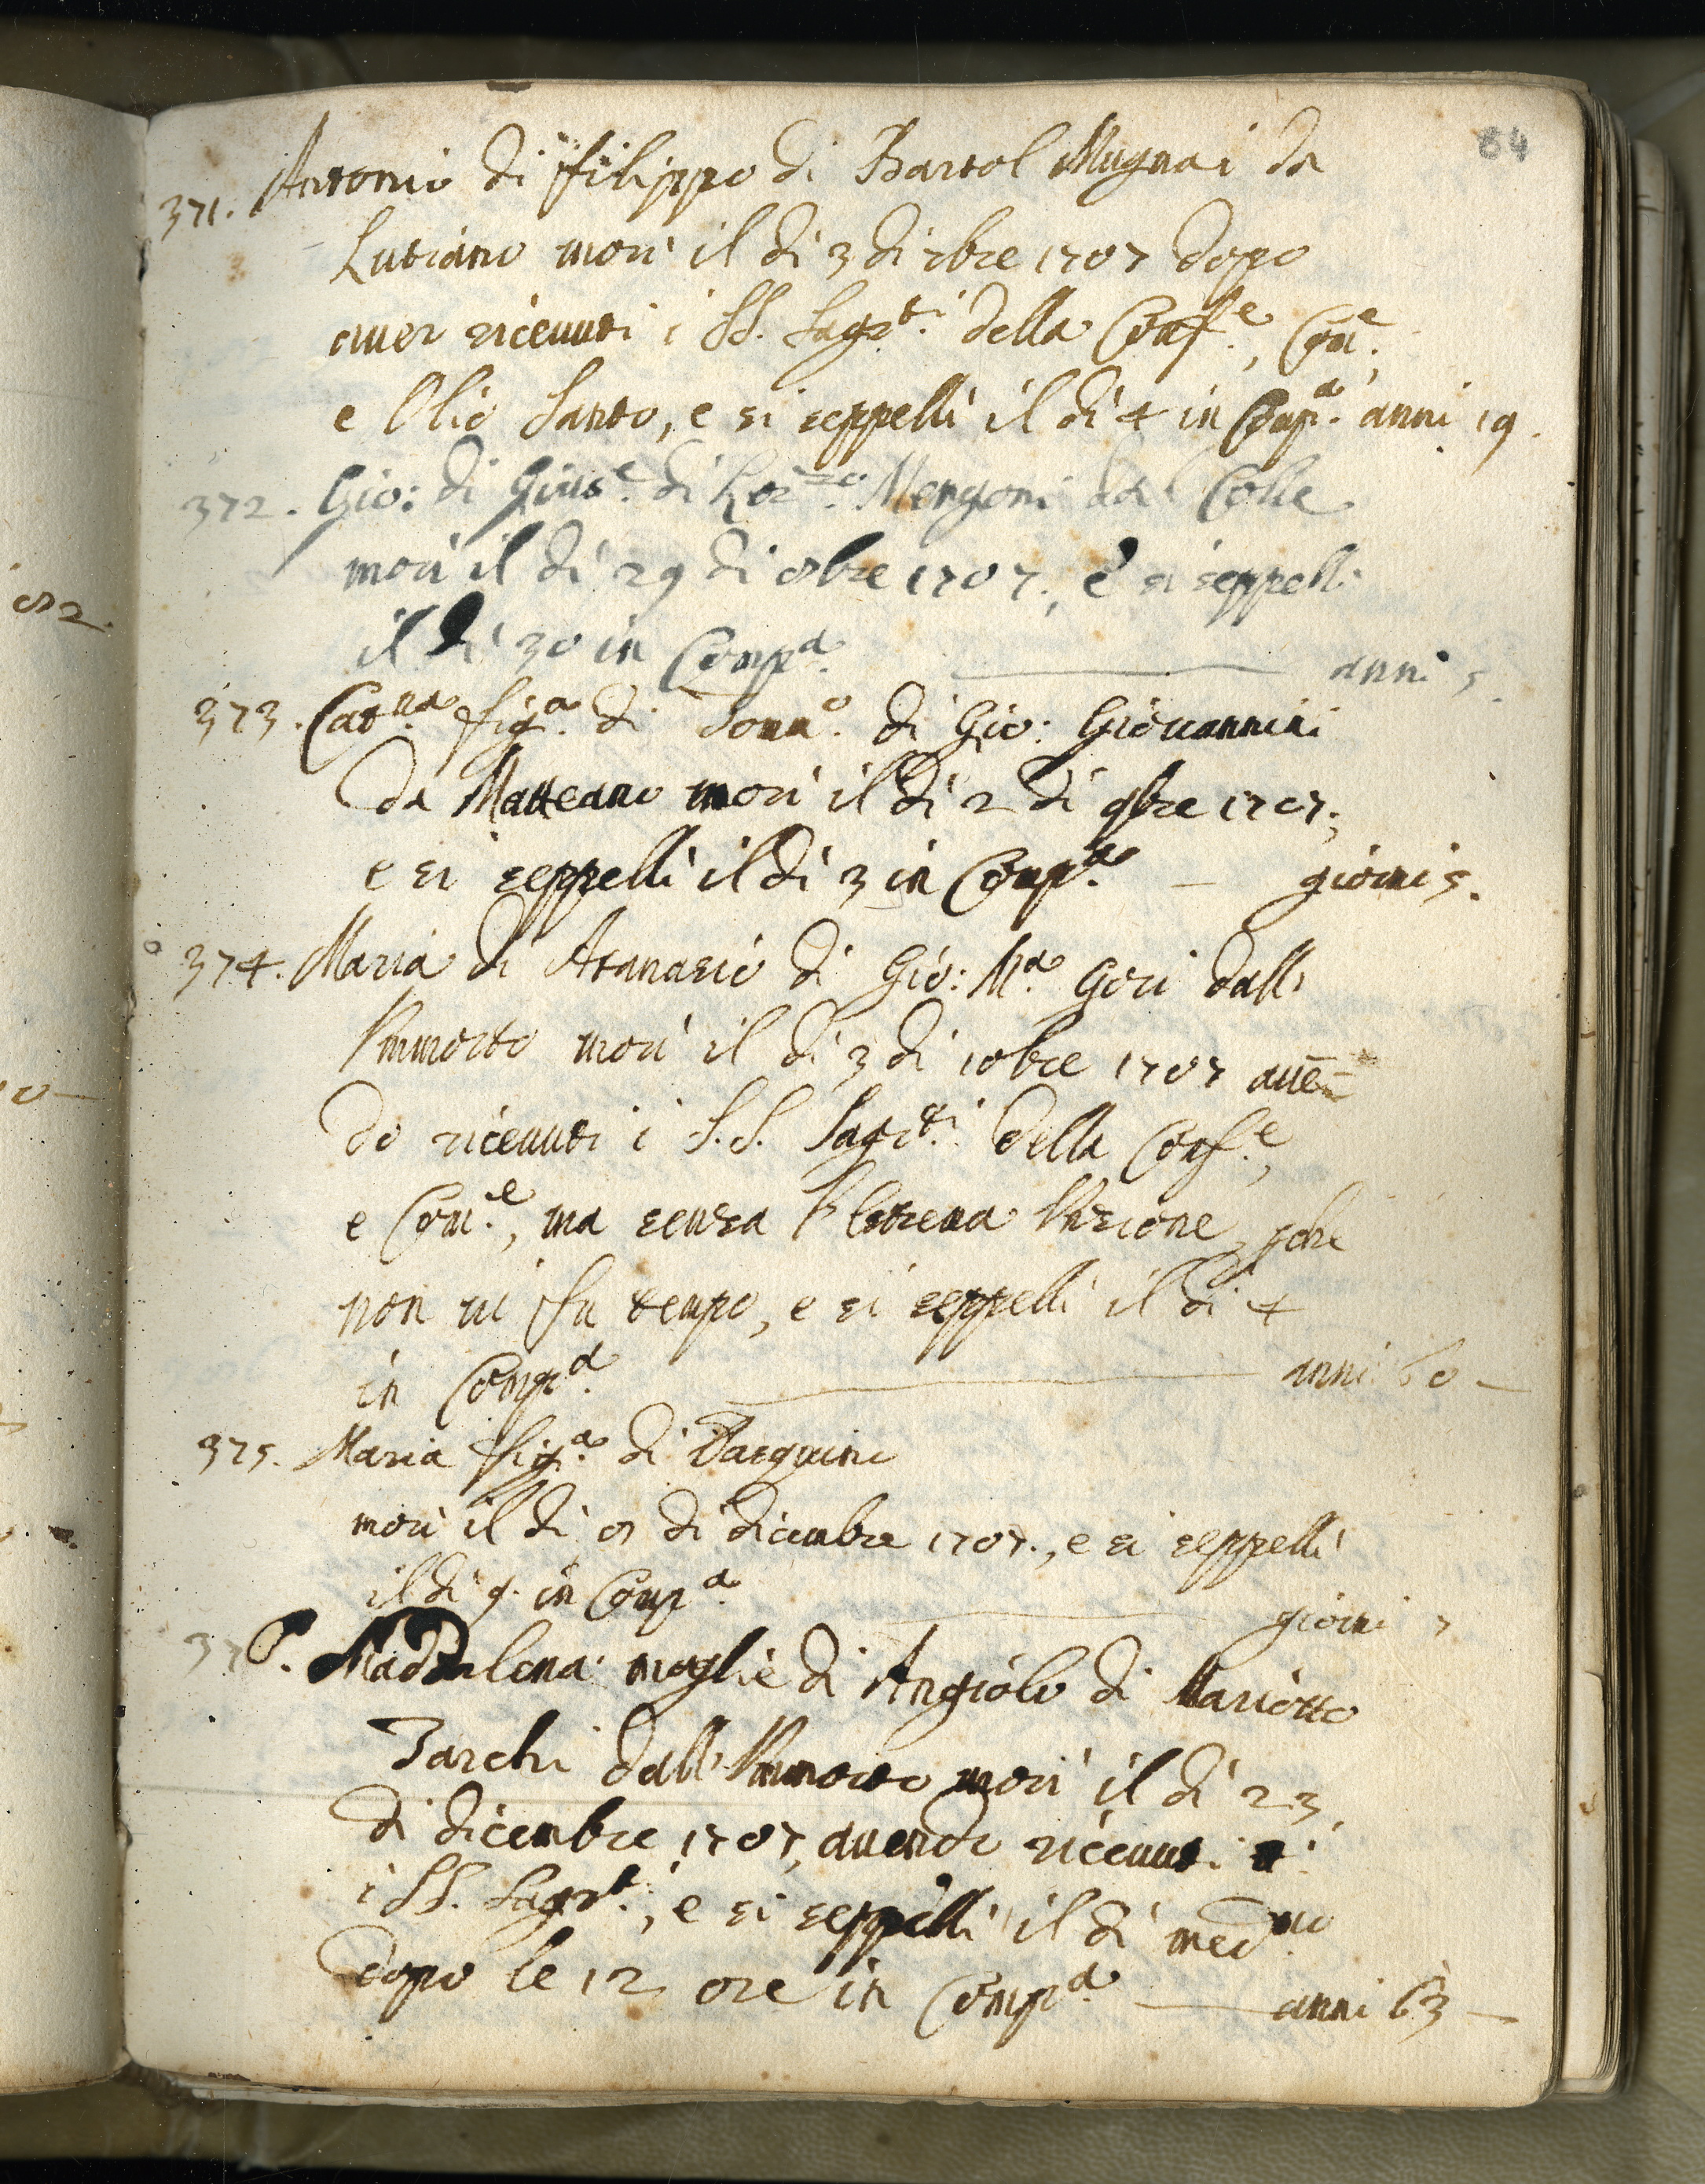 84
371. Antonio di Filippo di Bartol Mugnai da
Lutiano morì il dì 3 di 7bre 1707 dopo
auer riceuuti i SS. Sagr.ti della Conf.e, Com.e,
e Olio Santo, e si seppellì il dì 4 in Comp.a anni 19.
372. Gio: di Gius.e di Lor.zo Mengoni dal Colle
morì il dì 29 di 8bre 1707, e si seppellì
il dì 30 in Comp.a anni 5.
373. Cat.na fig.a di Dom.o di Gio: Giouannini
da Matteano morì il dì 2 di 9bre 1707;
e si seppellì il dì 3 in Comp.a — giorni 5.
374. Maria di Atanasio di Gio: M.a Gori dall'
Immorto morì il dì 3 di 10bre 1707 auen
do riceuuti i S.S. Sagr.ti della Conf.e,
e Com.e, ma senza l'Estrema Unzione, perche
non ui fu tempo, e si seppellì il dì 4
in Comp.a — anni 60 —
375. Maria fig.a di Tarquinio
morì il dì 8 di dicembre 1707., e si seppellì
il dì 9. in Comp.a giorni 7
376. Maddalena moglie di Angiolo di Mariotto
Tarchi dall'Immorto morì il dì 23
di dicembre 1707, auendo riceuuti
i SS. Sagr.ti, e si seppellì il dì med.mo
dopo le 12 ore in Comp.a — anni 63 —